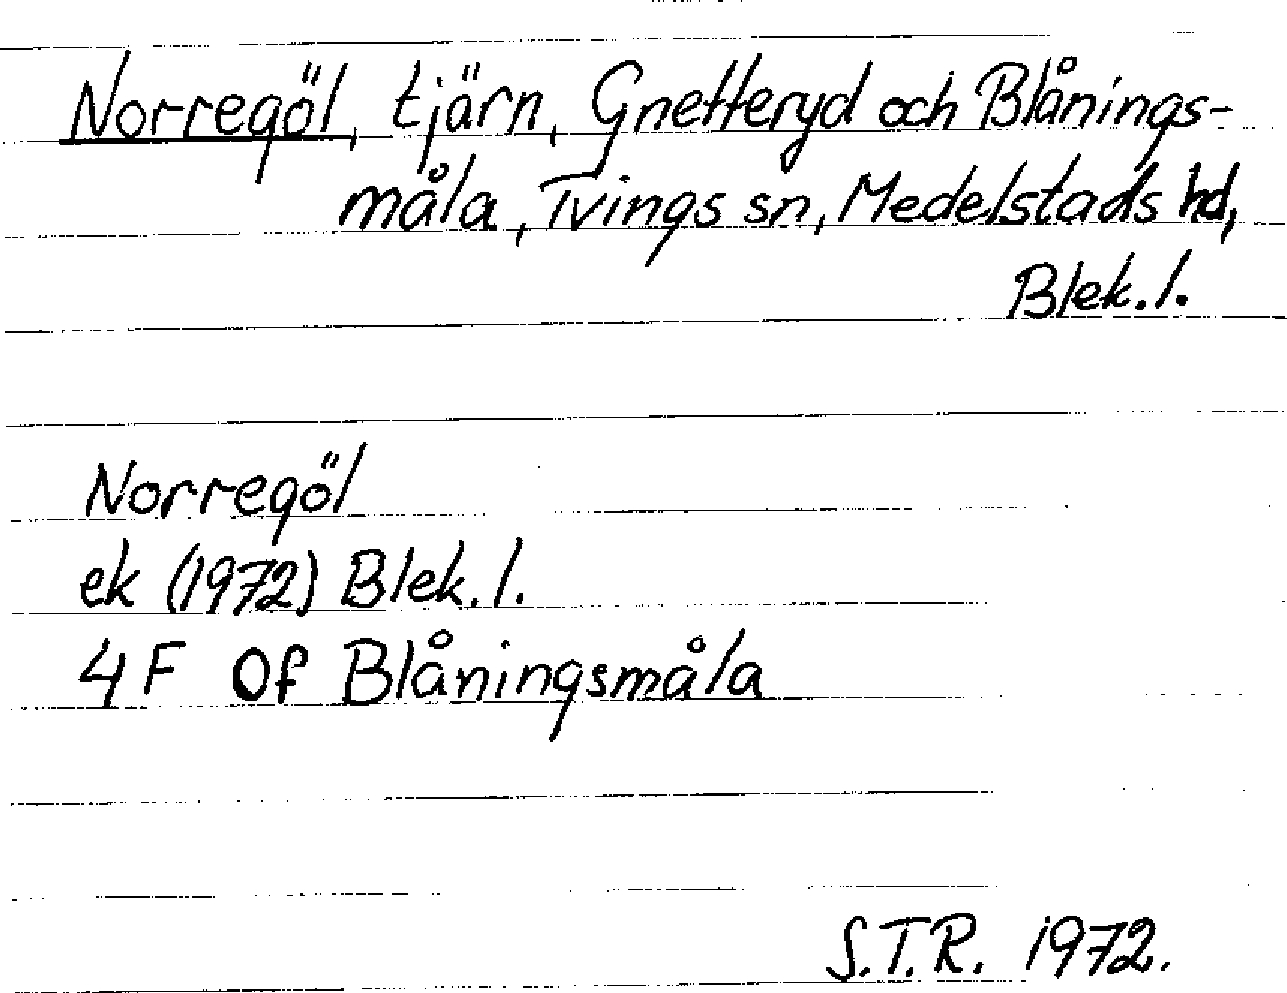 Norregöl, tjärn, Gnetteryd och Blånings-
måla, Tvings sn, Medelstads hd,
Blek. l.
Norregöl
ek (1972) Blek. l.
4 F 0f Blåningsmåla
S.T.R. 1972.